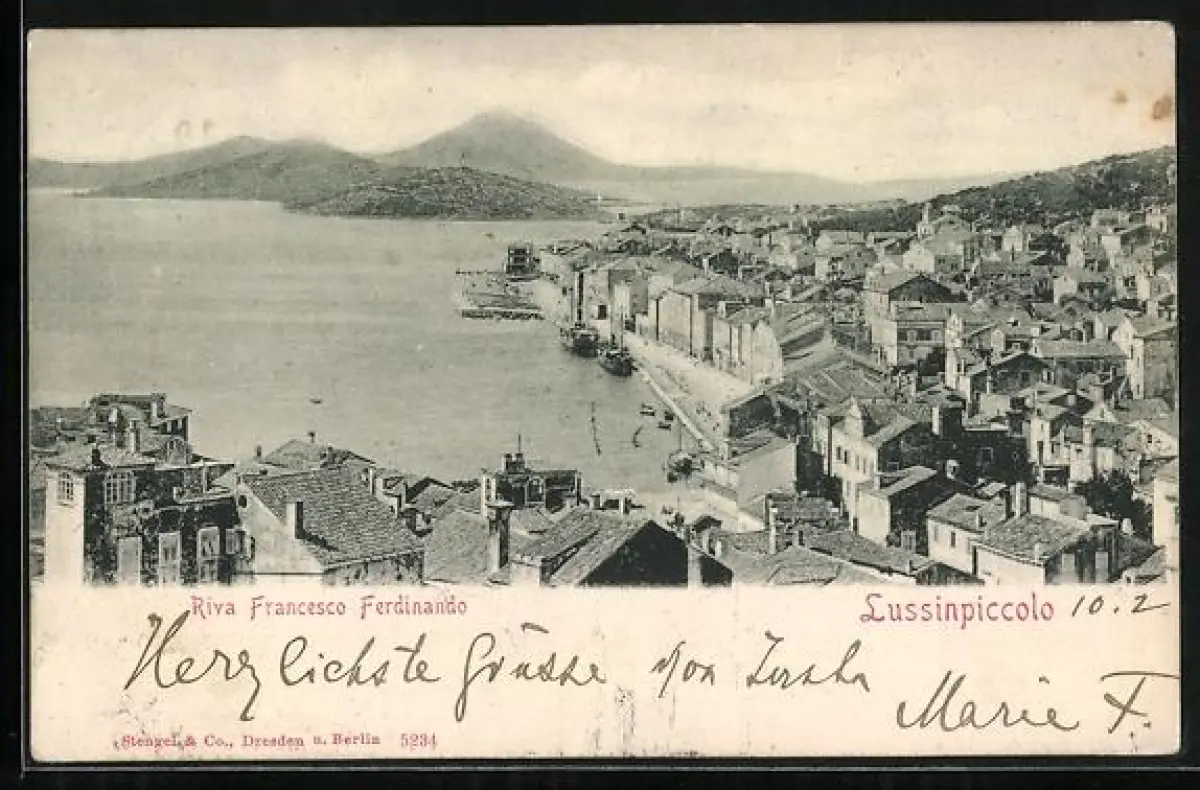 Riva Francesco Ferdinando
Lussinpiccolo 10. 2
Herzlichste Grüsse von
Marie F.
Stengel & Co., Dresden u. Berlin 5234